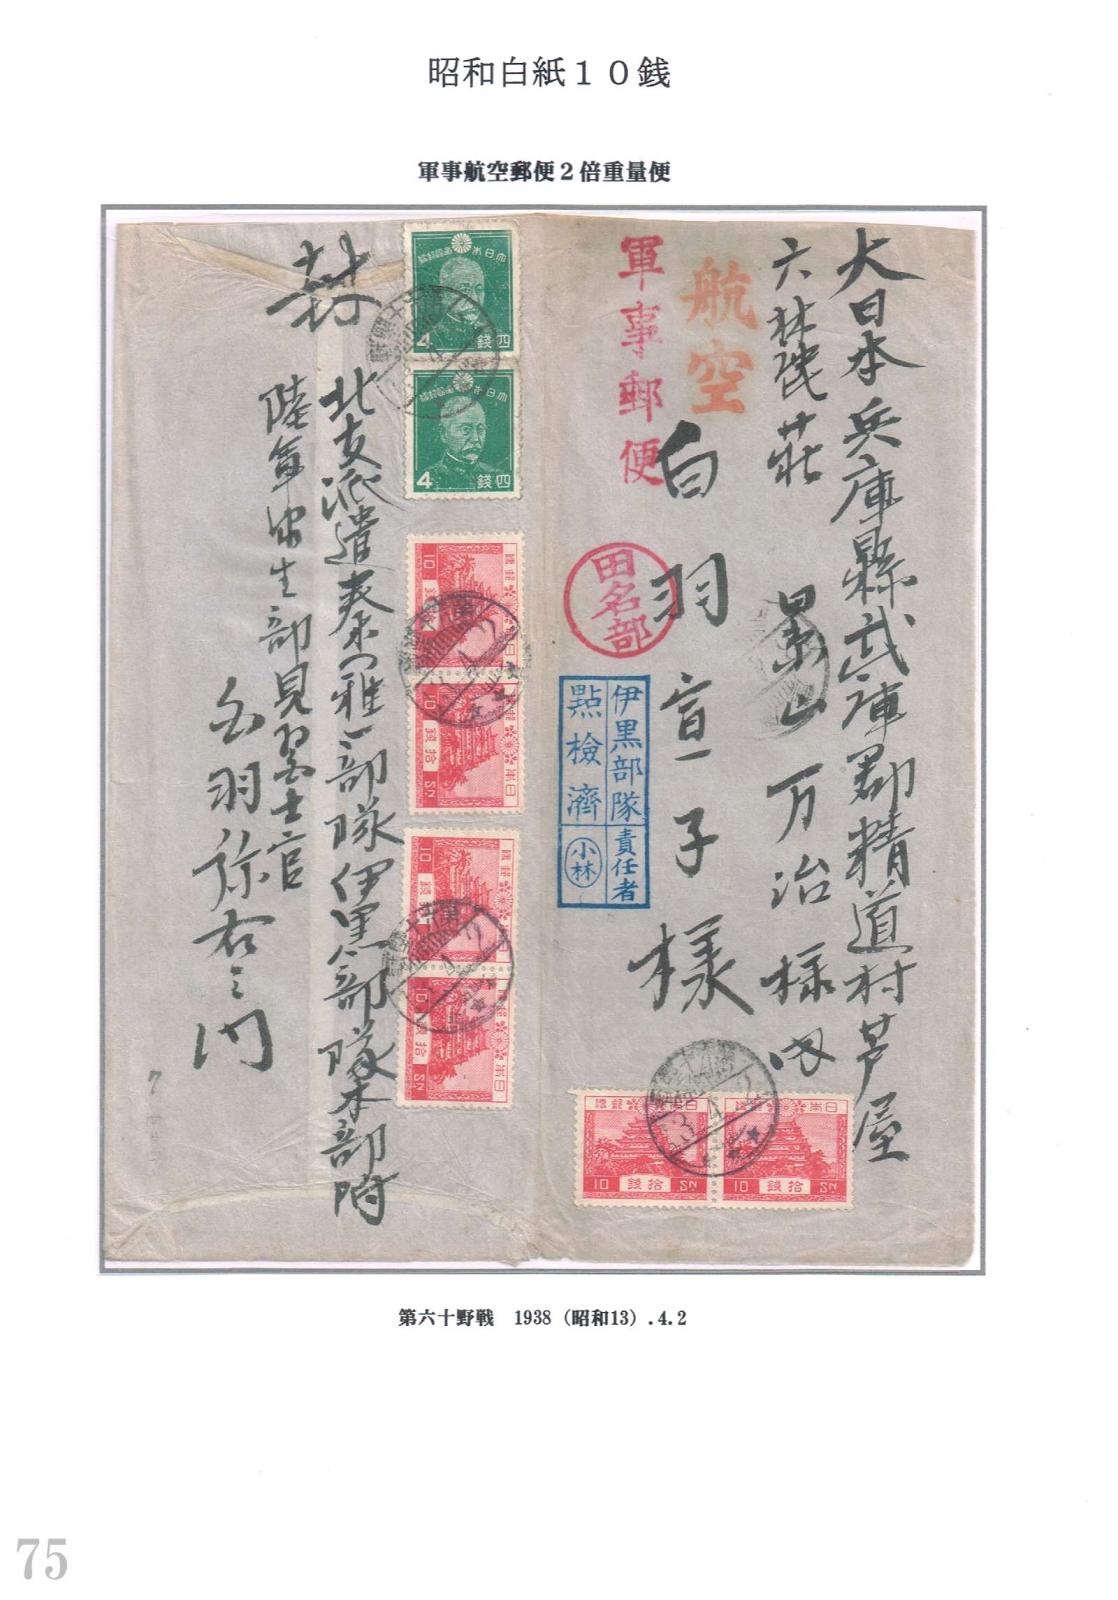 昭和白紙１０銭
軍事航空郵便２倍重量便
大日本兵庫縣武庫郡精道村芦屋
六林荘 景山万治様内
白羽宣子様
航空
軍事郵便
田名部
伊黒部隊責任者
點檢濟
小林
大日本帝國郵便
四銭
4
大日本帝國郵便
四銭
4
日本 國郵
拾銭
10 SN
日本 國郵
拾銭
10 SN
日本 國郵
拾銭
10 SN
日本 國郵
拾銭
10 SN
日本 國郵
10 拾銭 SN
日本 國郵
10 拾銭 SN
封
北支派遣 雅一部隊伊黒部隊本部附
陸軍衛生部見習士官
白羽弥右衛門
第六十野戦　1938（昭和13）.4.2
75